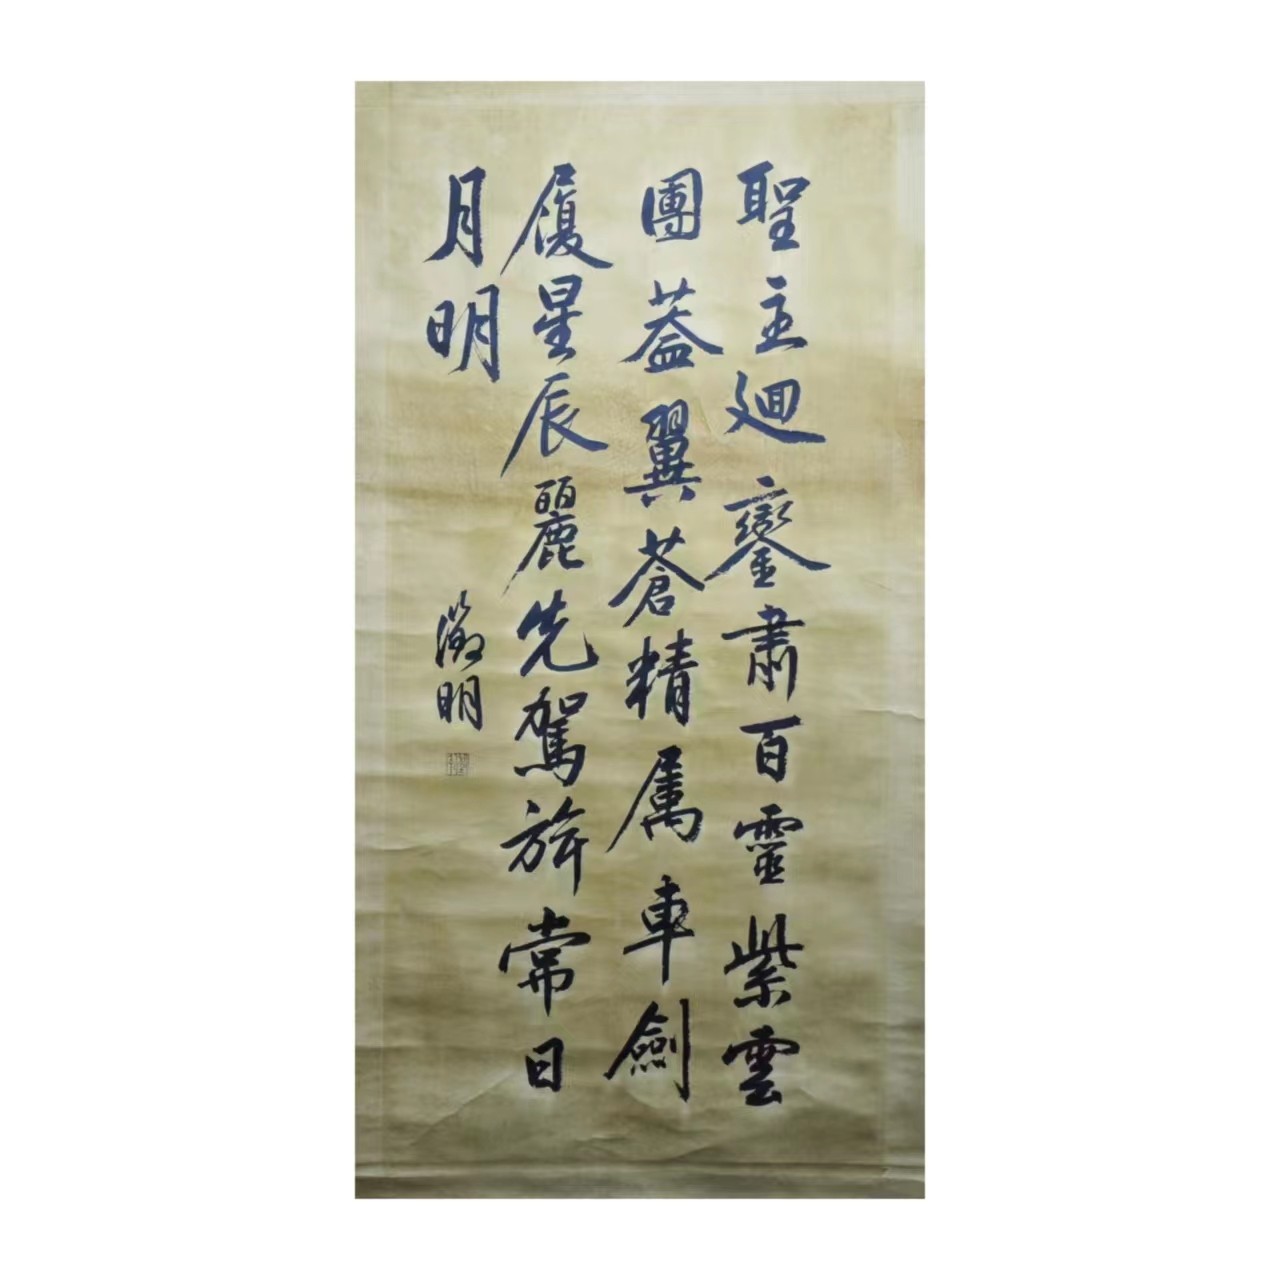 聖主迴鑾肅百靈紫雲
團蓋翼蒼精属車劍
履星辰麗先駕旂常日
月明
徵明